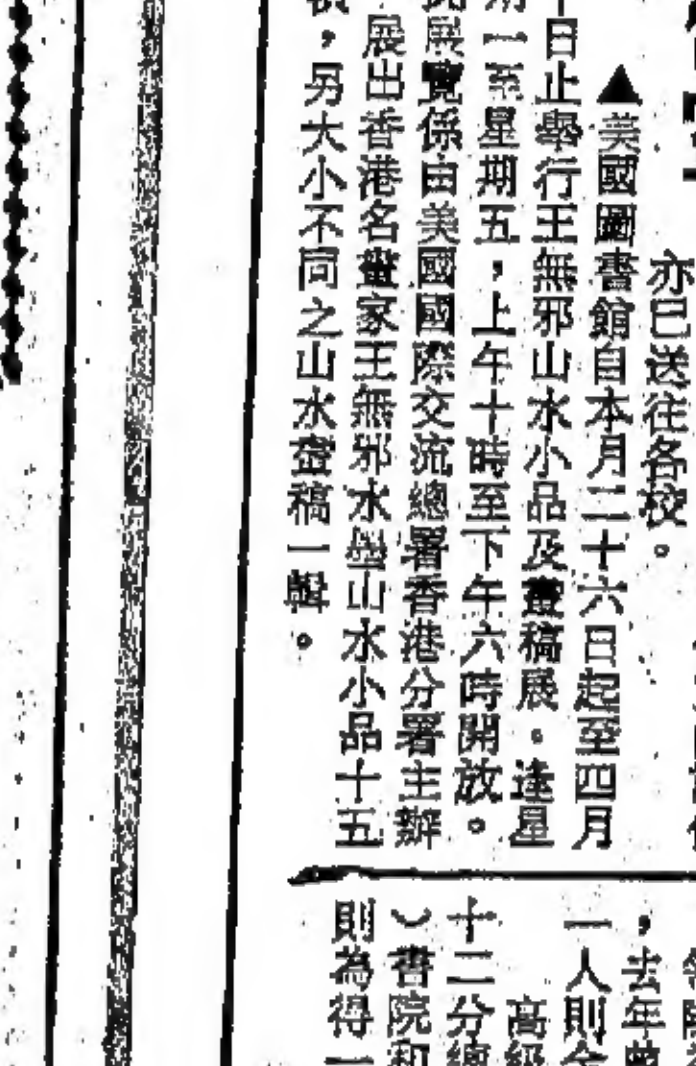 亦已送往各校。
▲美國圖書館自本月二十六日起至四月
日止舉行王無邪山水小品及畫稿展。逢星
一至星期五，上午十時至下午六時開放。
展覽係由美國國際交流總署香港分署主辦
展出香港名畫家王無邪水墨山水小品十五
，另大小不同之山水畫稿一輯。
，去年
一人則
高級
十二分
）書院和
則為得一